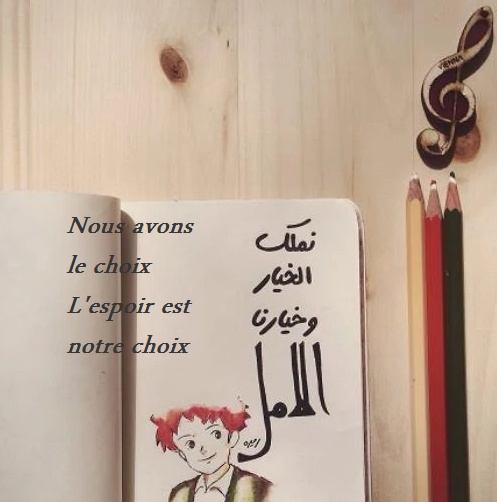 Nous avons
le choix
L'espoir est
notre choix
نملك
الخيار
وخيارنا
الأمل
VIENNA